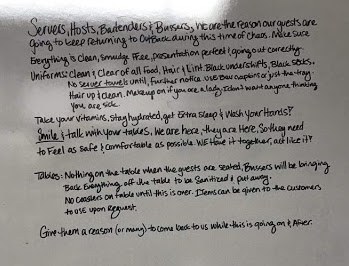 Servers, Hosts, Bartenders & Bussers, We are the reason our guests are
going to keep returning to Outback during this time of chaos. Make sure
Everything is Clean, Smudge Free, Presentation perfect & going out correctly.
Uniforms: Clean & Clear of all Food, Hair & Lint. Black undershirts, Black Socks.
No server towels until, Further notice. USE Bev napkins or just the tray.
Hair up & clean. Makeup on if you are a lady. I don't want anyone thinking
you are sick.
Take your vitamins, stay hydrated, get Extra Sleep & Wash your Hands!
Smile & talk with your tables. We are here, they are Here. So they need
to Feel as safe & comfortable as possible. WE Have it together, act like it!
Tables: Nothing on the table when the guests are seated, Bussers will be bringing
Back Everything off the table to be Sanitized & put away.
No Coasters on table until this is over. Items can be given to the customers
to USE upon Request.
Give them a reason (or many) to come back to us while this is going on & After.